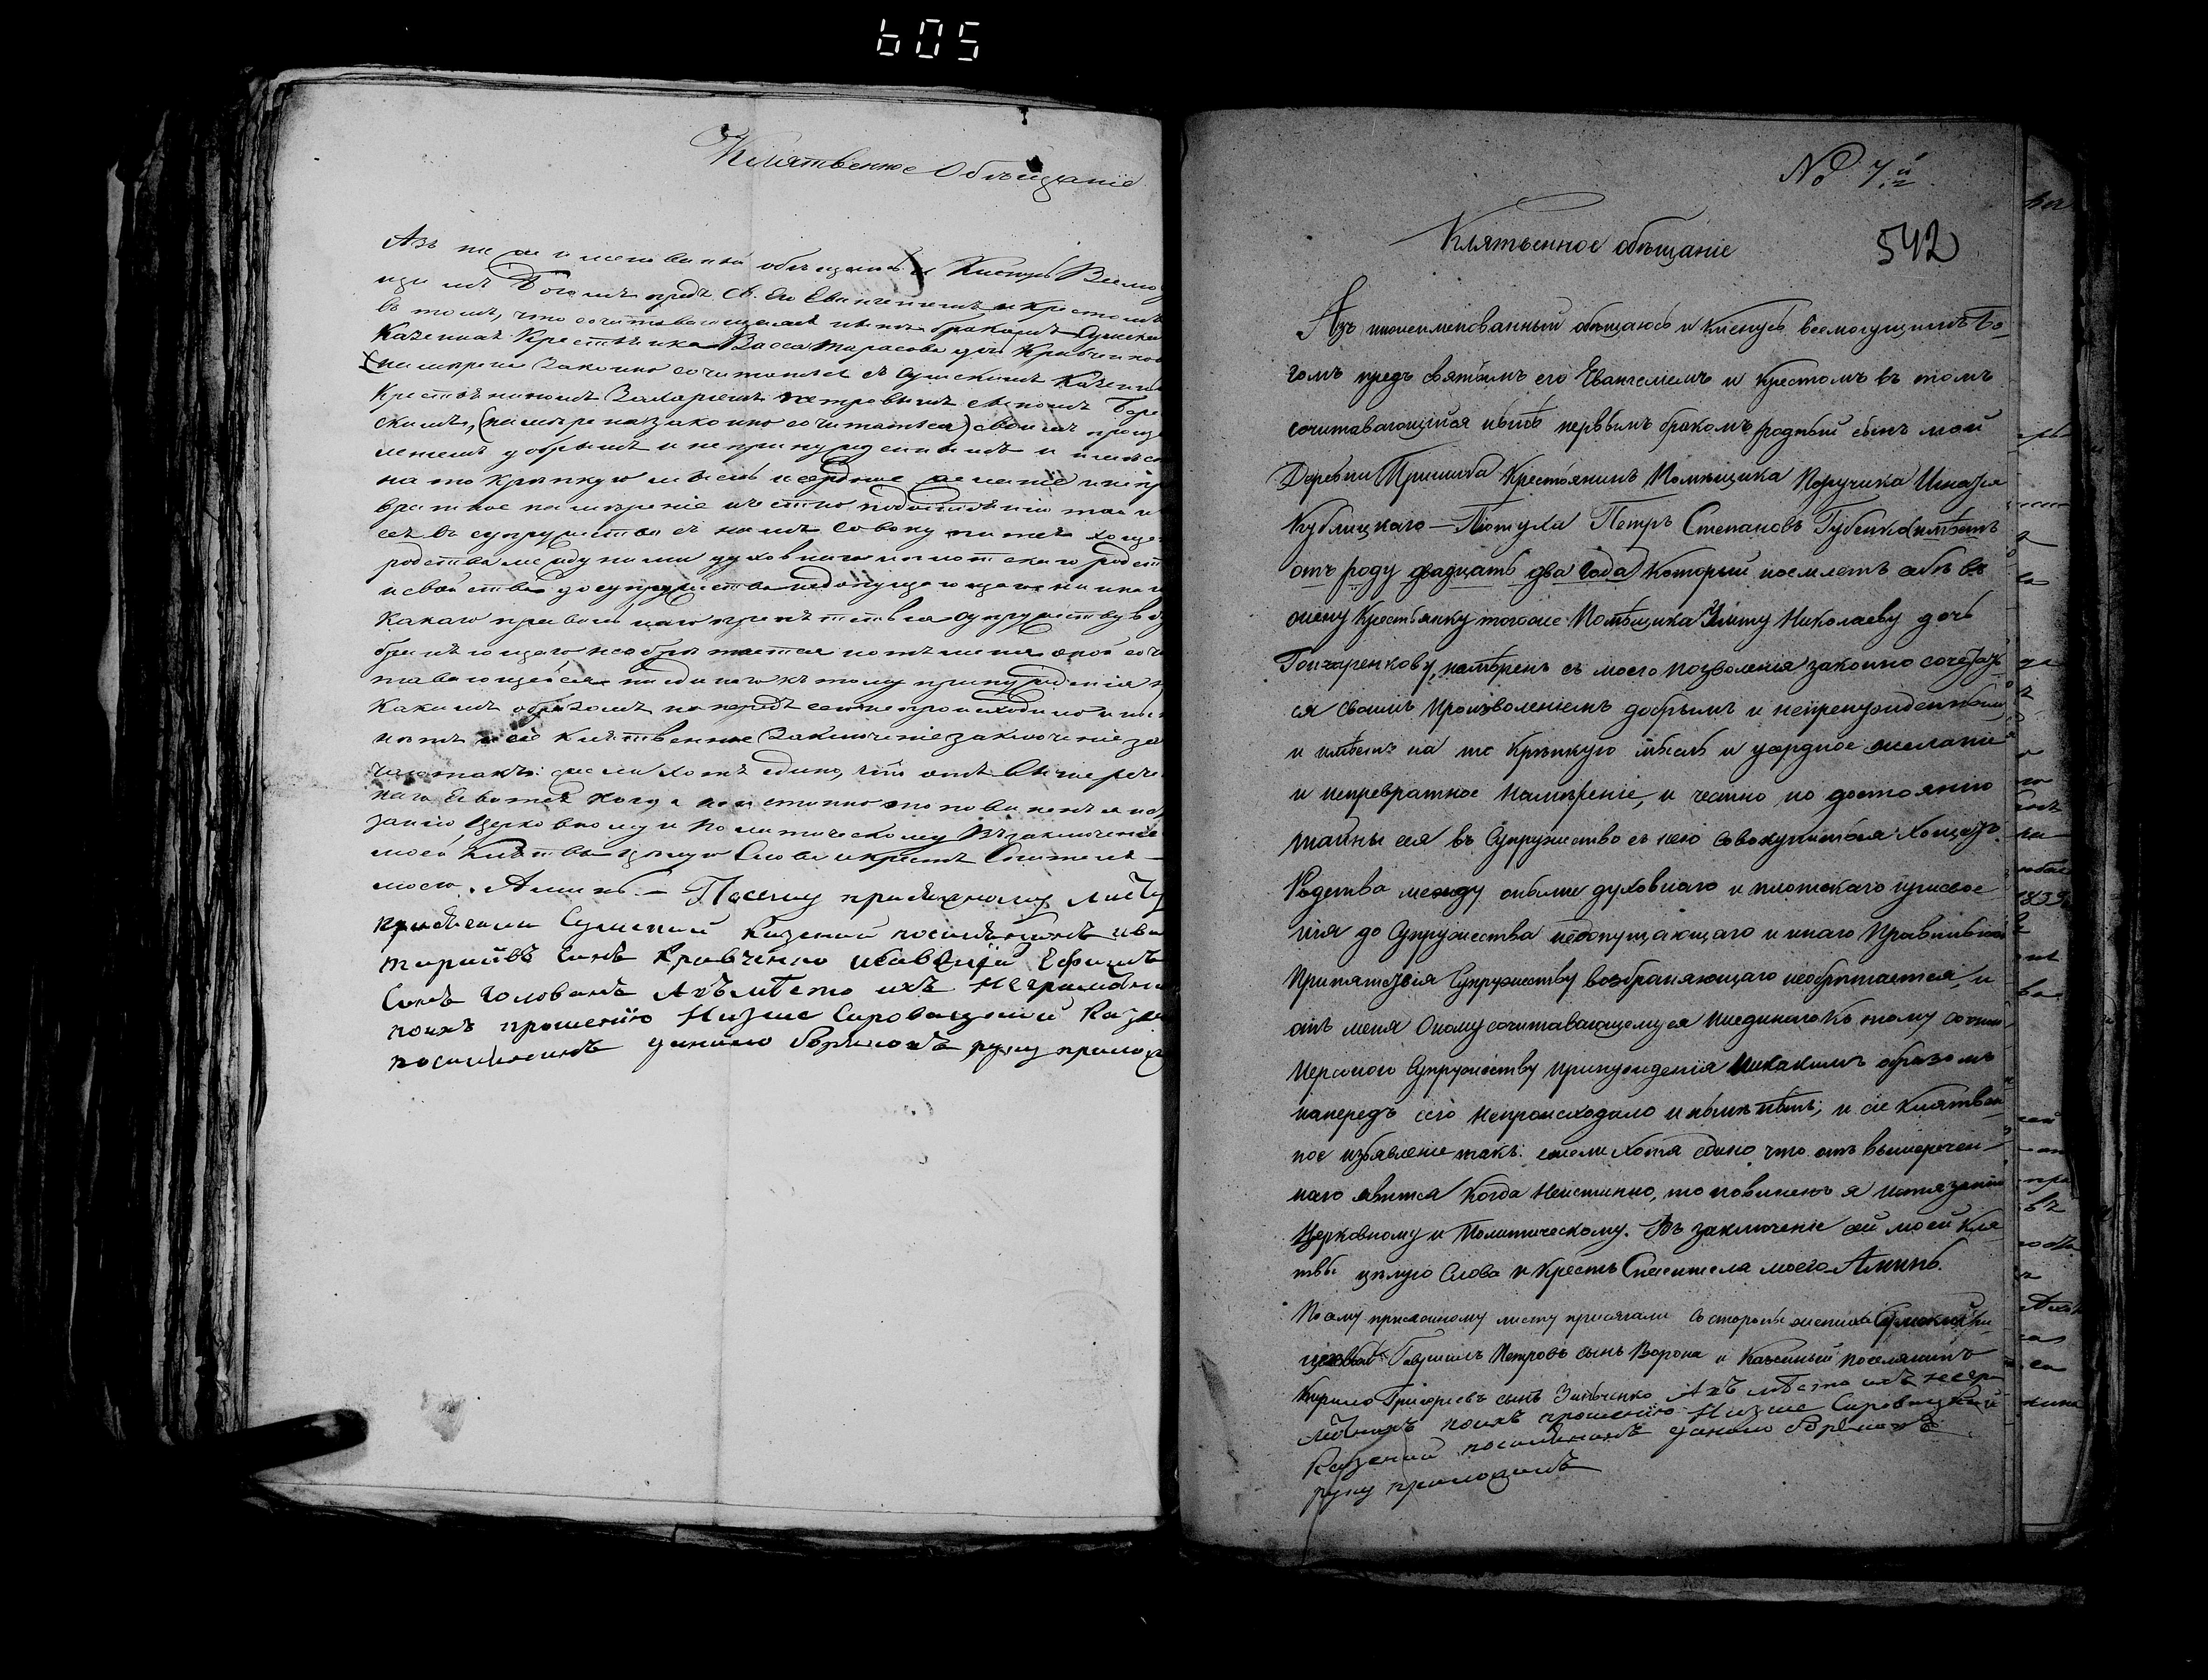 605
Клятвенное Обѣщаніе
Азъ обѣщаюсь и Клянусь Всемо
щимъ Богомъ предъ С. Его Евангеліемъ и крестомъ
въ томъ, что сочитавающаяся бракомъ
Казенная Крестьянка Васса Тарасова дочь Кравченкова
законно сочитатись съ Сумскимъ Казеннымъ
Крестьяниномъ Захаріемъ Петровымъ сыномъ
скимъ, законно сочитатися) своимъ произ
леніемъ добрымъ и непринужденнымъ и имѣетъ
на то крѣпкую мысль и усердное желаніе и непр
вратное намѣреніе и честно по достоянію тайны
сея въ супружество съ нимъ совокупитись хощетъ
родства между ними духовнаго и плотскаго
и свойства до супружества недопущающаго и инаго
Какаго правильнаго препятствія супружеству воз
браняющаго необрѣтается и отъ меня оной сочи
тавающейся ниединаго къ тому принужденія ни
Какимъ образомъ напередъ сего не происходило и нынѣ
нѣтъ и сіе клятвенное заключеніе заключеніе за
такъ: если хотя едино, что отъ вышерече
наго явится когда неистинно то повиненъ я
занію Церковному и Политическому Въ заключеніе
моей клятвы цѣлую Слова и крестъ Спасителя
моего. Аминь. – Посему присяжному листу
присягали Сумскій Казенный поселянинъ
Тарасовъ Сынъ Кравченко и Савелій Ефимовъ
Сынъ Голованъ А вмѣсто ихъ неграмотныхъ
поихъ прошенію Низше Сыроватскій Казен
поселянинъ Данило руку приложилъ
№ 7й
542
Клятвенное обѣщаніе
Азъ нижеименованный обѣщаюсь и клянусь всемогущимъ Бо-
гомъ предъ святымъ его Евангеліемъ и крестомъ въ томъ
сочитавающійся нынѣ первымъ бракомъ родный сынъ мой
Деревни Пришиба Крестьянинъ Помѣщика Поручика
Кублицкаго – Піотуха Петръ Степановъ Губенко (имѣетъ
отъ роду двадцать два года) который поемлетъ себѣ въ
жену Крестьянку тогоже Помѣщика Улиту Николаеву дочь
Гончаренкову, намѣренъ съ моего позволенія законно сочетать
ся своимъ произволеніемъ добрымъ и непренужденнымъ,
и имѣетъ на то крѣпкую мысль и усердное желаніе
и непревратное намѣреніе, и честно по достоянію
тайны сея въ Супружество съ нею совокупитися хощетъ.
Родства между оными духовнаго и плотскаго
нія до Супружества недопущающаго и инаго Правильнаго
Припятствія Супружеству возбраняющаго необрѣтается, и
отъ меня Оному сочитавающемуся ниединаго къ тому
Супружеству принужденія никакимъ образомъ
напередъ сего непроисходило и нынѣ нѣтъ; и сіе клятвен
ное изъявленіе такъ: ежели хотя едино что отъ вышеречен-
наго явится когда неистинно, то повиненъ я истязанію
Церковному и Политическому. Въ заключеніе сей моей кля
твы цѣлую Слова и Крестъ Спасителя моего. Аминь.
По сему присяжному листу присягали со стороны жениха Сумскій
Гавріилъ Петровъ сынъ Ворона и Казенный поселянинъ
Кирило Григорьевъ сынъ Зинченко А вмѣсто ихъ негра
мотныхъ поихъ прошенію Низше Сыроватскій
Казенный поселянинъ Данило
руку приложилъ